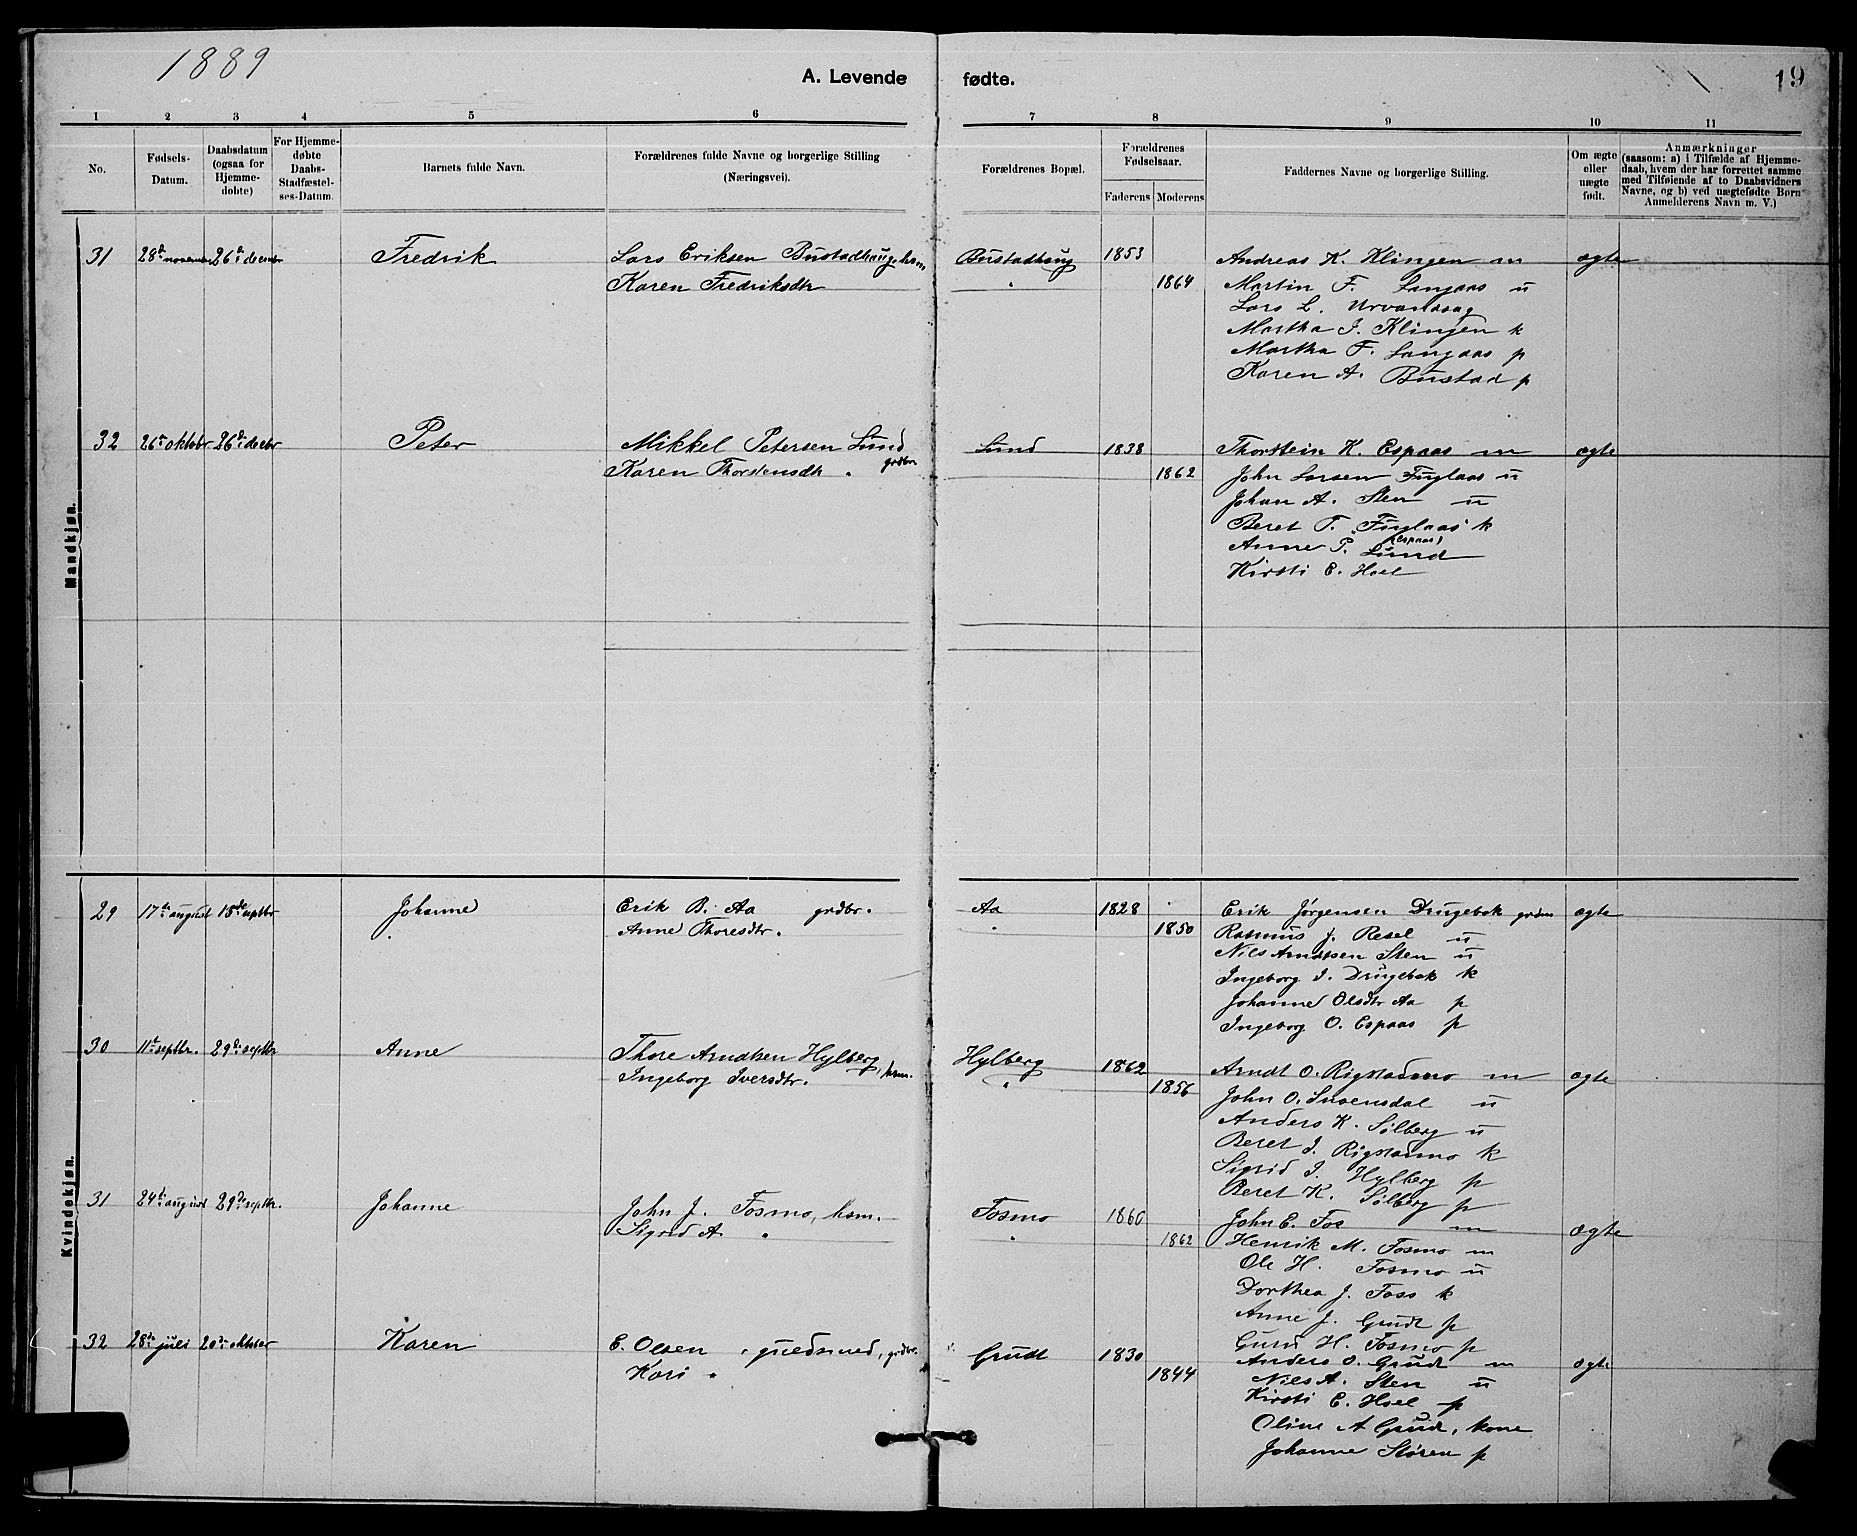 1889
A. Levende fødte.
19
1 2 3 4 5 6 7 8 9 10 11
No.
Fødsels-Datum.
Daabsdatum (ogsaa for Hjemme-dobte)
For Hjemme-døbte Daabs-Stadfæstel-ses-Datum.
Barnets fulde Navn.
Forældrenes fulde Navne og borgerlige Stilling (Næringsvei).
Forældrenes Bopæl.
Forældrenes Fødselsaar.
Faderens Moderens
Faddernes Navne og borgerlige Stilling.
Om ægte eller uægte født.
Anmærkninger (saasom: a) i Tilfælde af Hjemme-daab, hvem der har forrettet samme med Tilføiende af to Daabsvidners Navne, og b) ved uægtefødte Børn Anmelderens Navn m. V.)
Mandkjøn.
31 28de november 26de decmbr Fredrik Lars Eriksen Bustadhaug, hsm Bustadhaug 1853 Andreas K. Klingen m ægte
Karen Fredriksdtr " 1864 Martin F. Langaas u
Lars L. Urvandsag
Martha J. Klingen k
Martha F. Langaas p
Karen A. Bustad p
32 26de oktobr 26de decbr Peter Mikkel Petersen Lund Lund 1838 Thorstein K. Espaas m ægte
Karen Thorstensdtr " grdbr 1862 John Larsen Fuglaas u
Johan A. Sten u
Beret T. Fuglaas k
Anne P. Lund (Espaas)
Kirsti E. Hoel
Kvindekjøn.
29 17de august 15de septbr Johanne Erik B. Aa grdbr. Aa 1828 Erik Jørgensen Drugebok grdm ægte
Anne Thoresdtr. " 1850 Rasmus J. Resel u
Nils Arndtsen Sten u
Ingeborg I. Drugebok k
Johanne Olsdtr Aa p
Ingeborg O. Espaas p
30 11te septbr. 29de septbr Anne Thore Arndtsen Hylberg, hsm. Hylberg 1862 Arndt O. Rigstadmo m ægte
Ingeborg Iversdtr. " 1856 John O. Svoensdal u
Anders K. Sølberg u
Beret I. Rigstadmo k
Sigrid I. Hylberg p
Beret K. Sølberg p
31 24de august 29de septbr. Johanne John J. Fosmo, hsm. Fosmo 1860 John E. Fos m ægte
Sigrid A " " 1862 Henrik M. Fosmo m
Ole H. Fosmo u
Dorthea J. Foss k
Anne J. Grudt p
Guru H. Fosmo p
32 28de juli 20de oktober Karen E. Olsen, grdbr. Grudt 1830 Anders O. Grudt m ægte
Kari " 1844 Nils A. Sten u
Kirsti E. Hoel p
Oline A Grudt, kone
Johanne Støren p